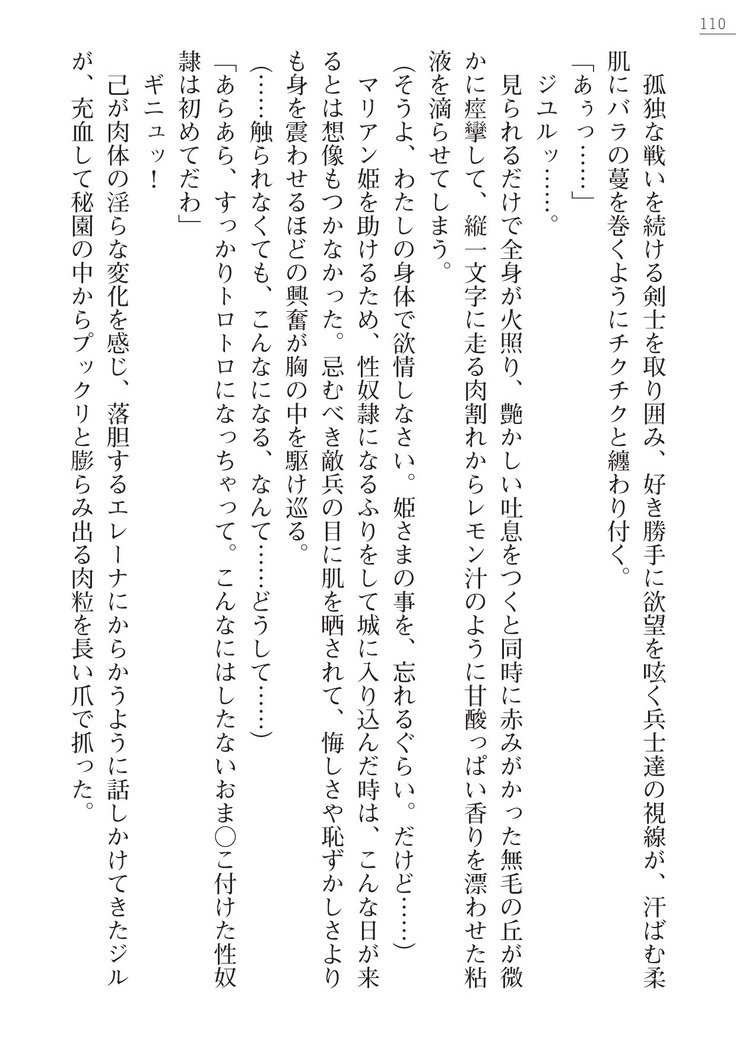 110
孤独な戦いを続ける剣士を取り囲み、好き勝手に欲望を呟く兵士達の視線が、汗ばむ柔
肌にバラの蔓を巻くようにチクチクと纏わり付く。
「あぅっ……」
ジユルッ……。
見られるだけで全身が火照り、艶かしい吐息をつくと同時に赤みがかった無毛の丘が微
かに痙攣して、縦一文字に走る肉割れからレモン汁のように甘酸っぱい香りを漂わせた粘
液を滴らせてしまう。
(そうよ、わたしの身体で欲情しなさい。姫さまの事を、忘れるぐらい。だけど……)
マリアン姫を助けるため、性奴隷になるふりをして城に入り込んだ時は、こんな日が来
るとは想像もつかなかった。忌むべき敵兵の目に肌を晒されて、悔しさや恥ずかしさより
も身を震わせるほどの興奮が胸の中を駆け巡る。
(……触られなくても、こんなになる、なんて……どうして……)
「あらあら、すっかりトロトロになっちゃって。こんなにはしたないおま〇こ付けた性奴
隷は初めてだわ」
ギニュッ！
己が肉体の淫らな変化を感じ、落胆するエレーナにからかうように話しかけてきたジル
が、充血して秘園の中からプックリと膨らみ出る肉粒を長い爪で抓った。